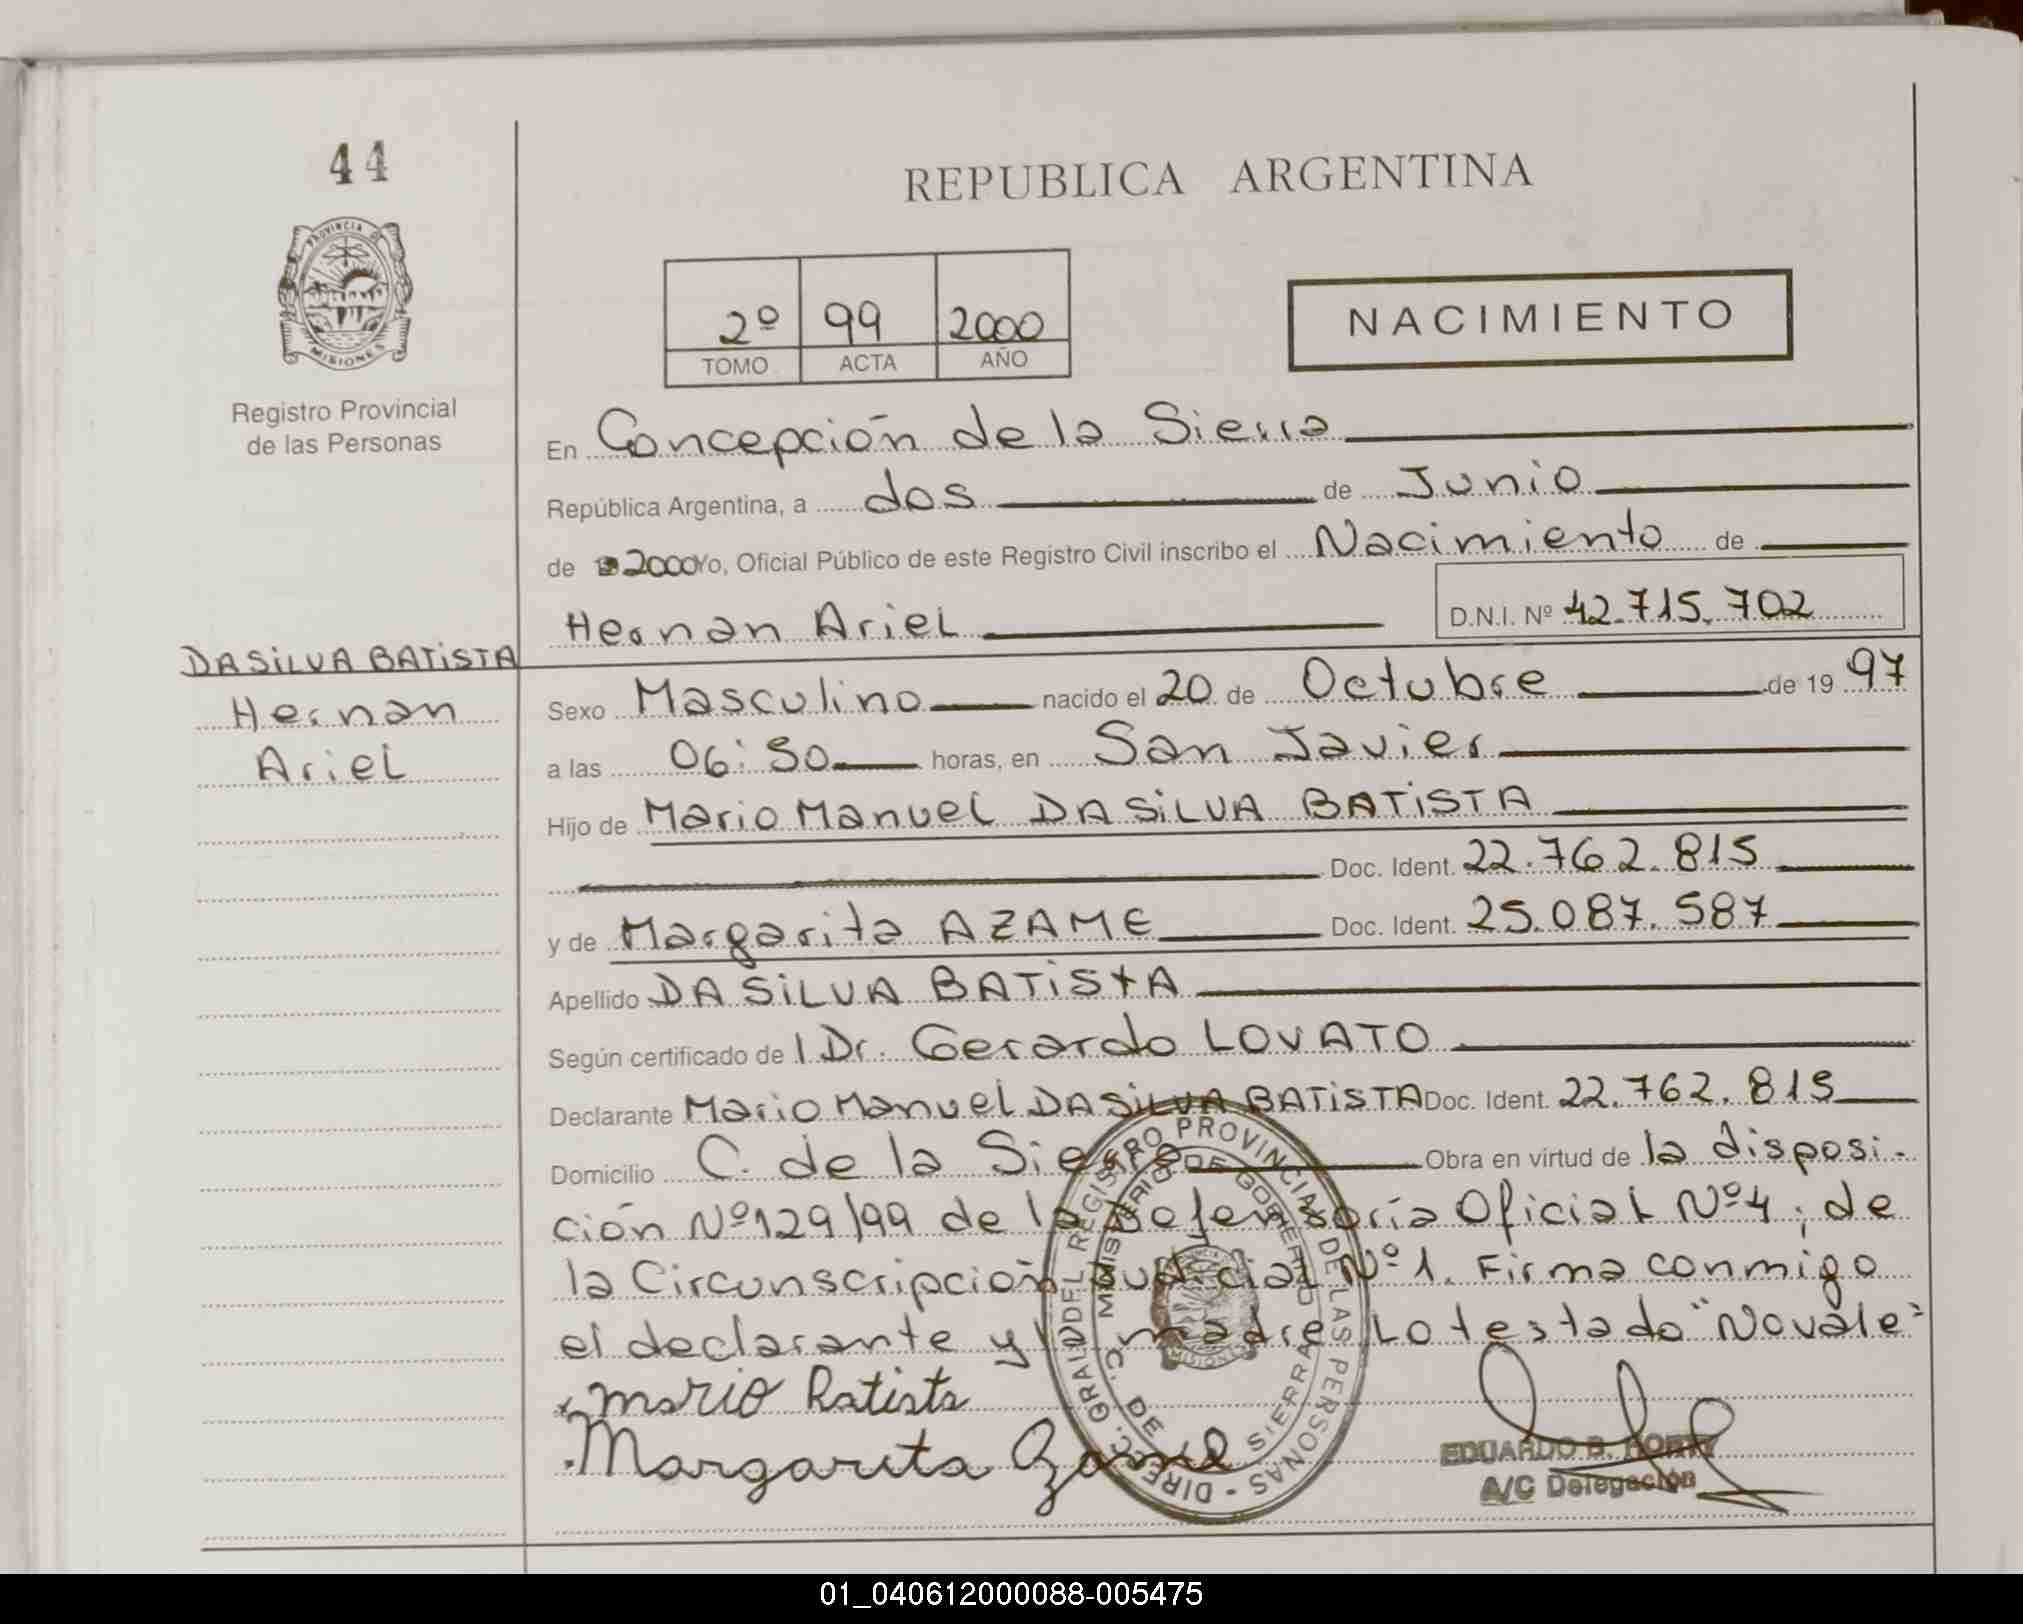 44
REPUBLICA ARGENTINA
PROVINCIA DE
MISIONES
Registro Provincial
de las Personas
2º 99 2000
TOMO ACTA AÑO
NACIMIENTO
En Concepción de la Sierra
República Argentina, a dos de Junio
de 2000 Yo, Oficial Público de este Registro Civil inscribo el Nacimiento de
Hernan Ariel D.N.I. Nº 42.715.702
DA SILVA BATISTA
Hernan
Ariel
Sexo Masculino nacido el 20 de Octubre de 19 97
a las 06:50 horas, en San Javier
Hijo de Mario Manuel DA SILVA BATISTA
Doc. Ident. 22.762.815
y de Margarita AZAME Doc. Ident. 25.087.587
Apellido DA SILVA BATISTA
Según certificado de l Dr. Gerardo LOVATO
Declarante Mario Manuel DA SILVA BATISTA Doc. Ident. 22.762.815
Domicilio C. de la Sierra Obra en virtud de la disposi-
ción Nº 129/99 de la Defensoría Oficial Nº 4, de
la Circunscripción Judicial Nº 1. Firma conmigo
el declarante y la madre Lo testado "No vale"
Mario Batista
Margarita Azame
DIREC. GRAL. DEL REGISTRO PROVINCIAL DE LAS PERSONAS -
MINISTERIO DE GOBIERNO
C. DE SIERRA
MISIONES
EDUARDO B.
A/C Delegación
01_040612000088-005475